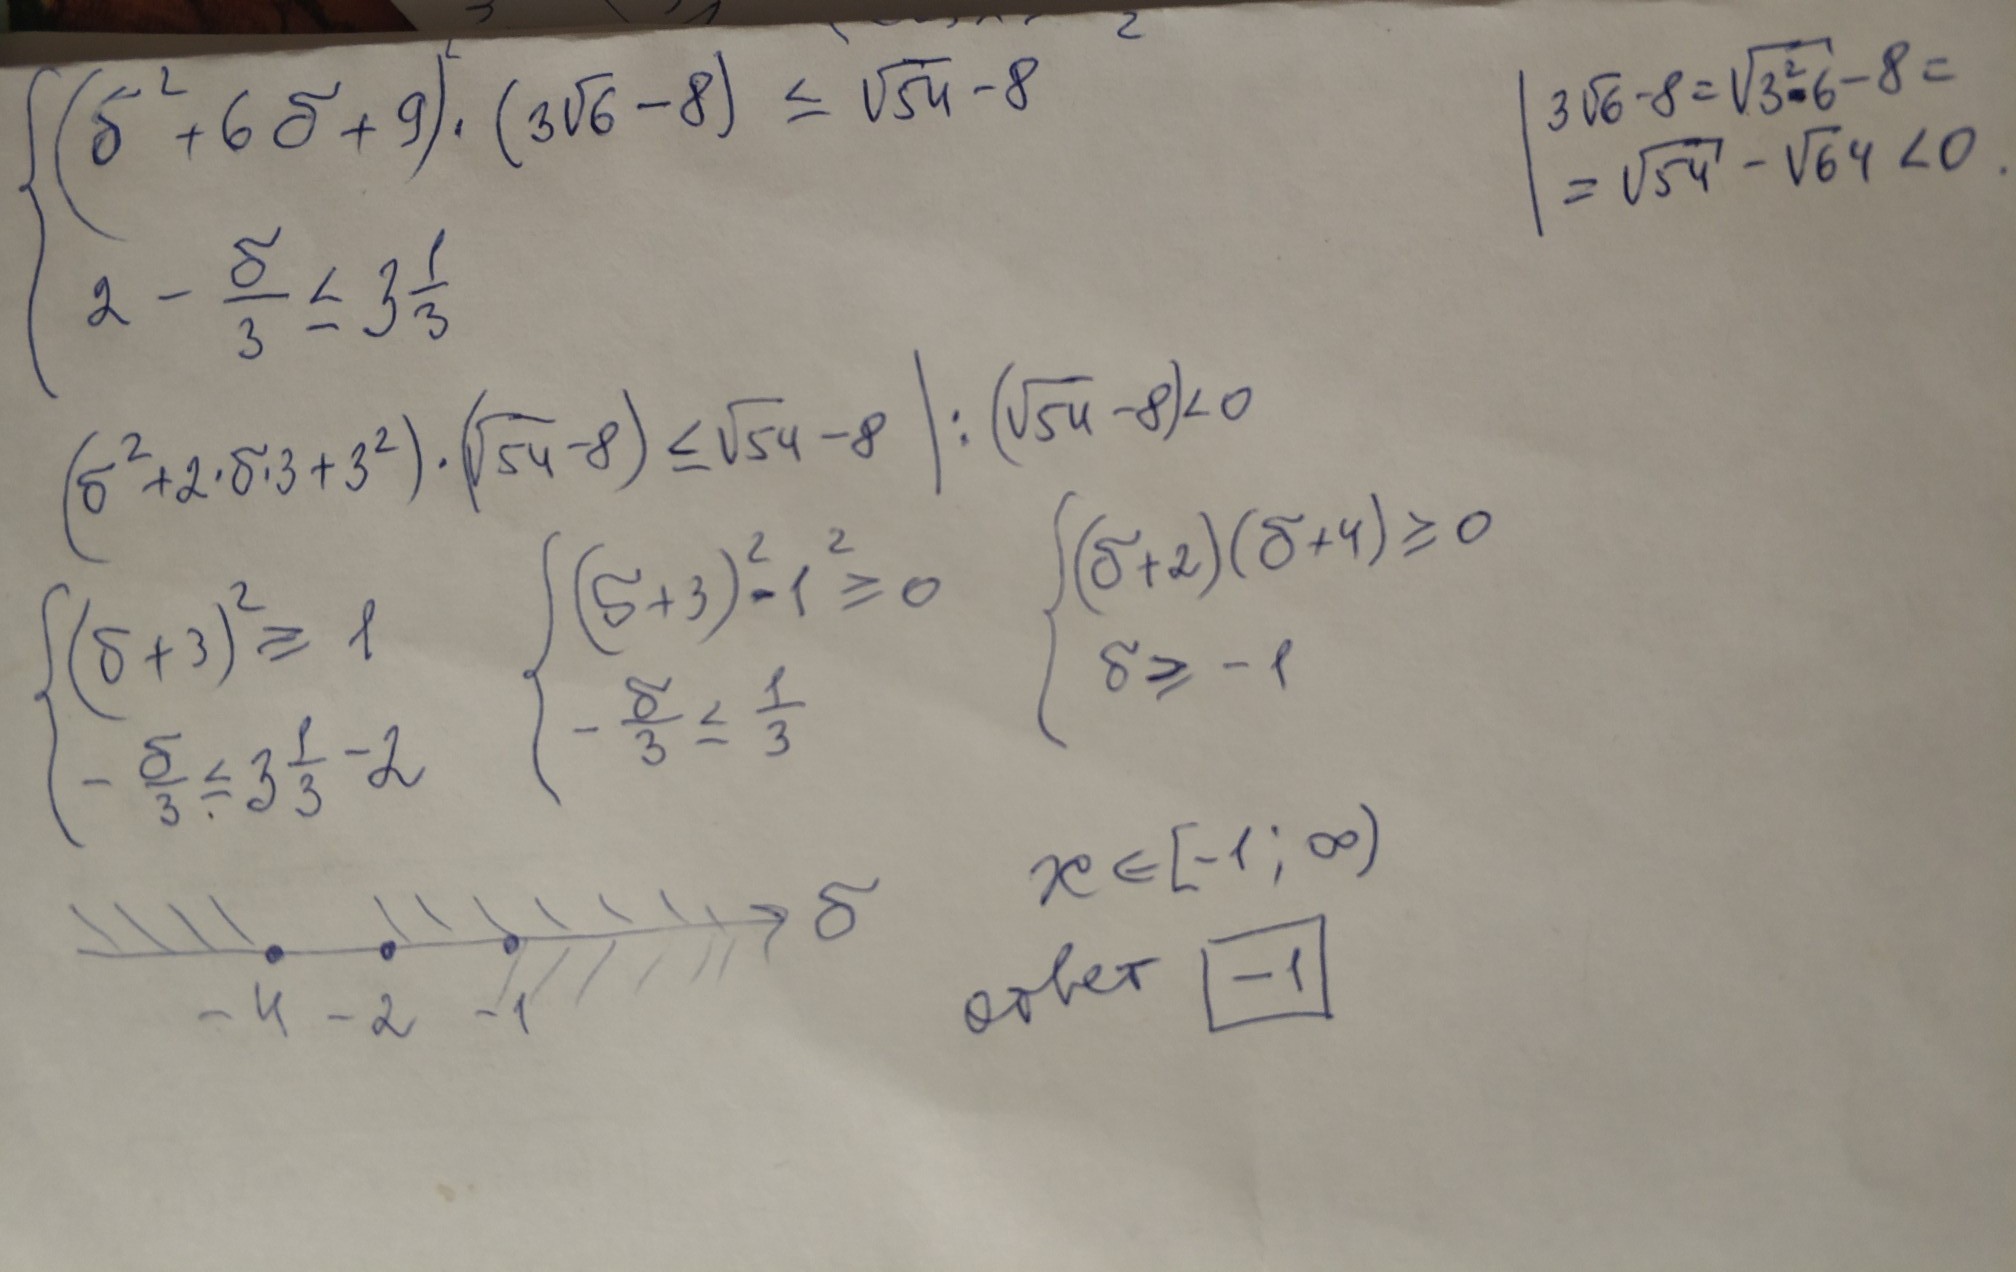 (б² + 6б + 9) · (3√6 − 8) ≤ √54 − 8
2 − б/3 ≤ 3 1/3
3√6 − 8 = √(3²·6) − 8 =
= √54 − √64 < 0.
(б² + 2·б·3 + 3²) · (√54 − 8) ≤ √54 − 8 | : (√54 − 8) < 0
(б + 3)² ≥ 1
− б/3 ≤ 3 1/3 − 2
(б + 3)² − 1² ≥ 0
− б/3 ≤ 1/3
(б + 2)(б + 4) ≥ 0
б ≥ −1
−4 −2 −1 б
x ∈ [−1; ∞)
ответ −1